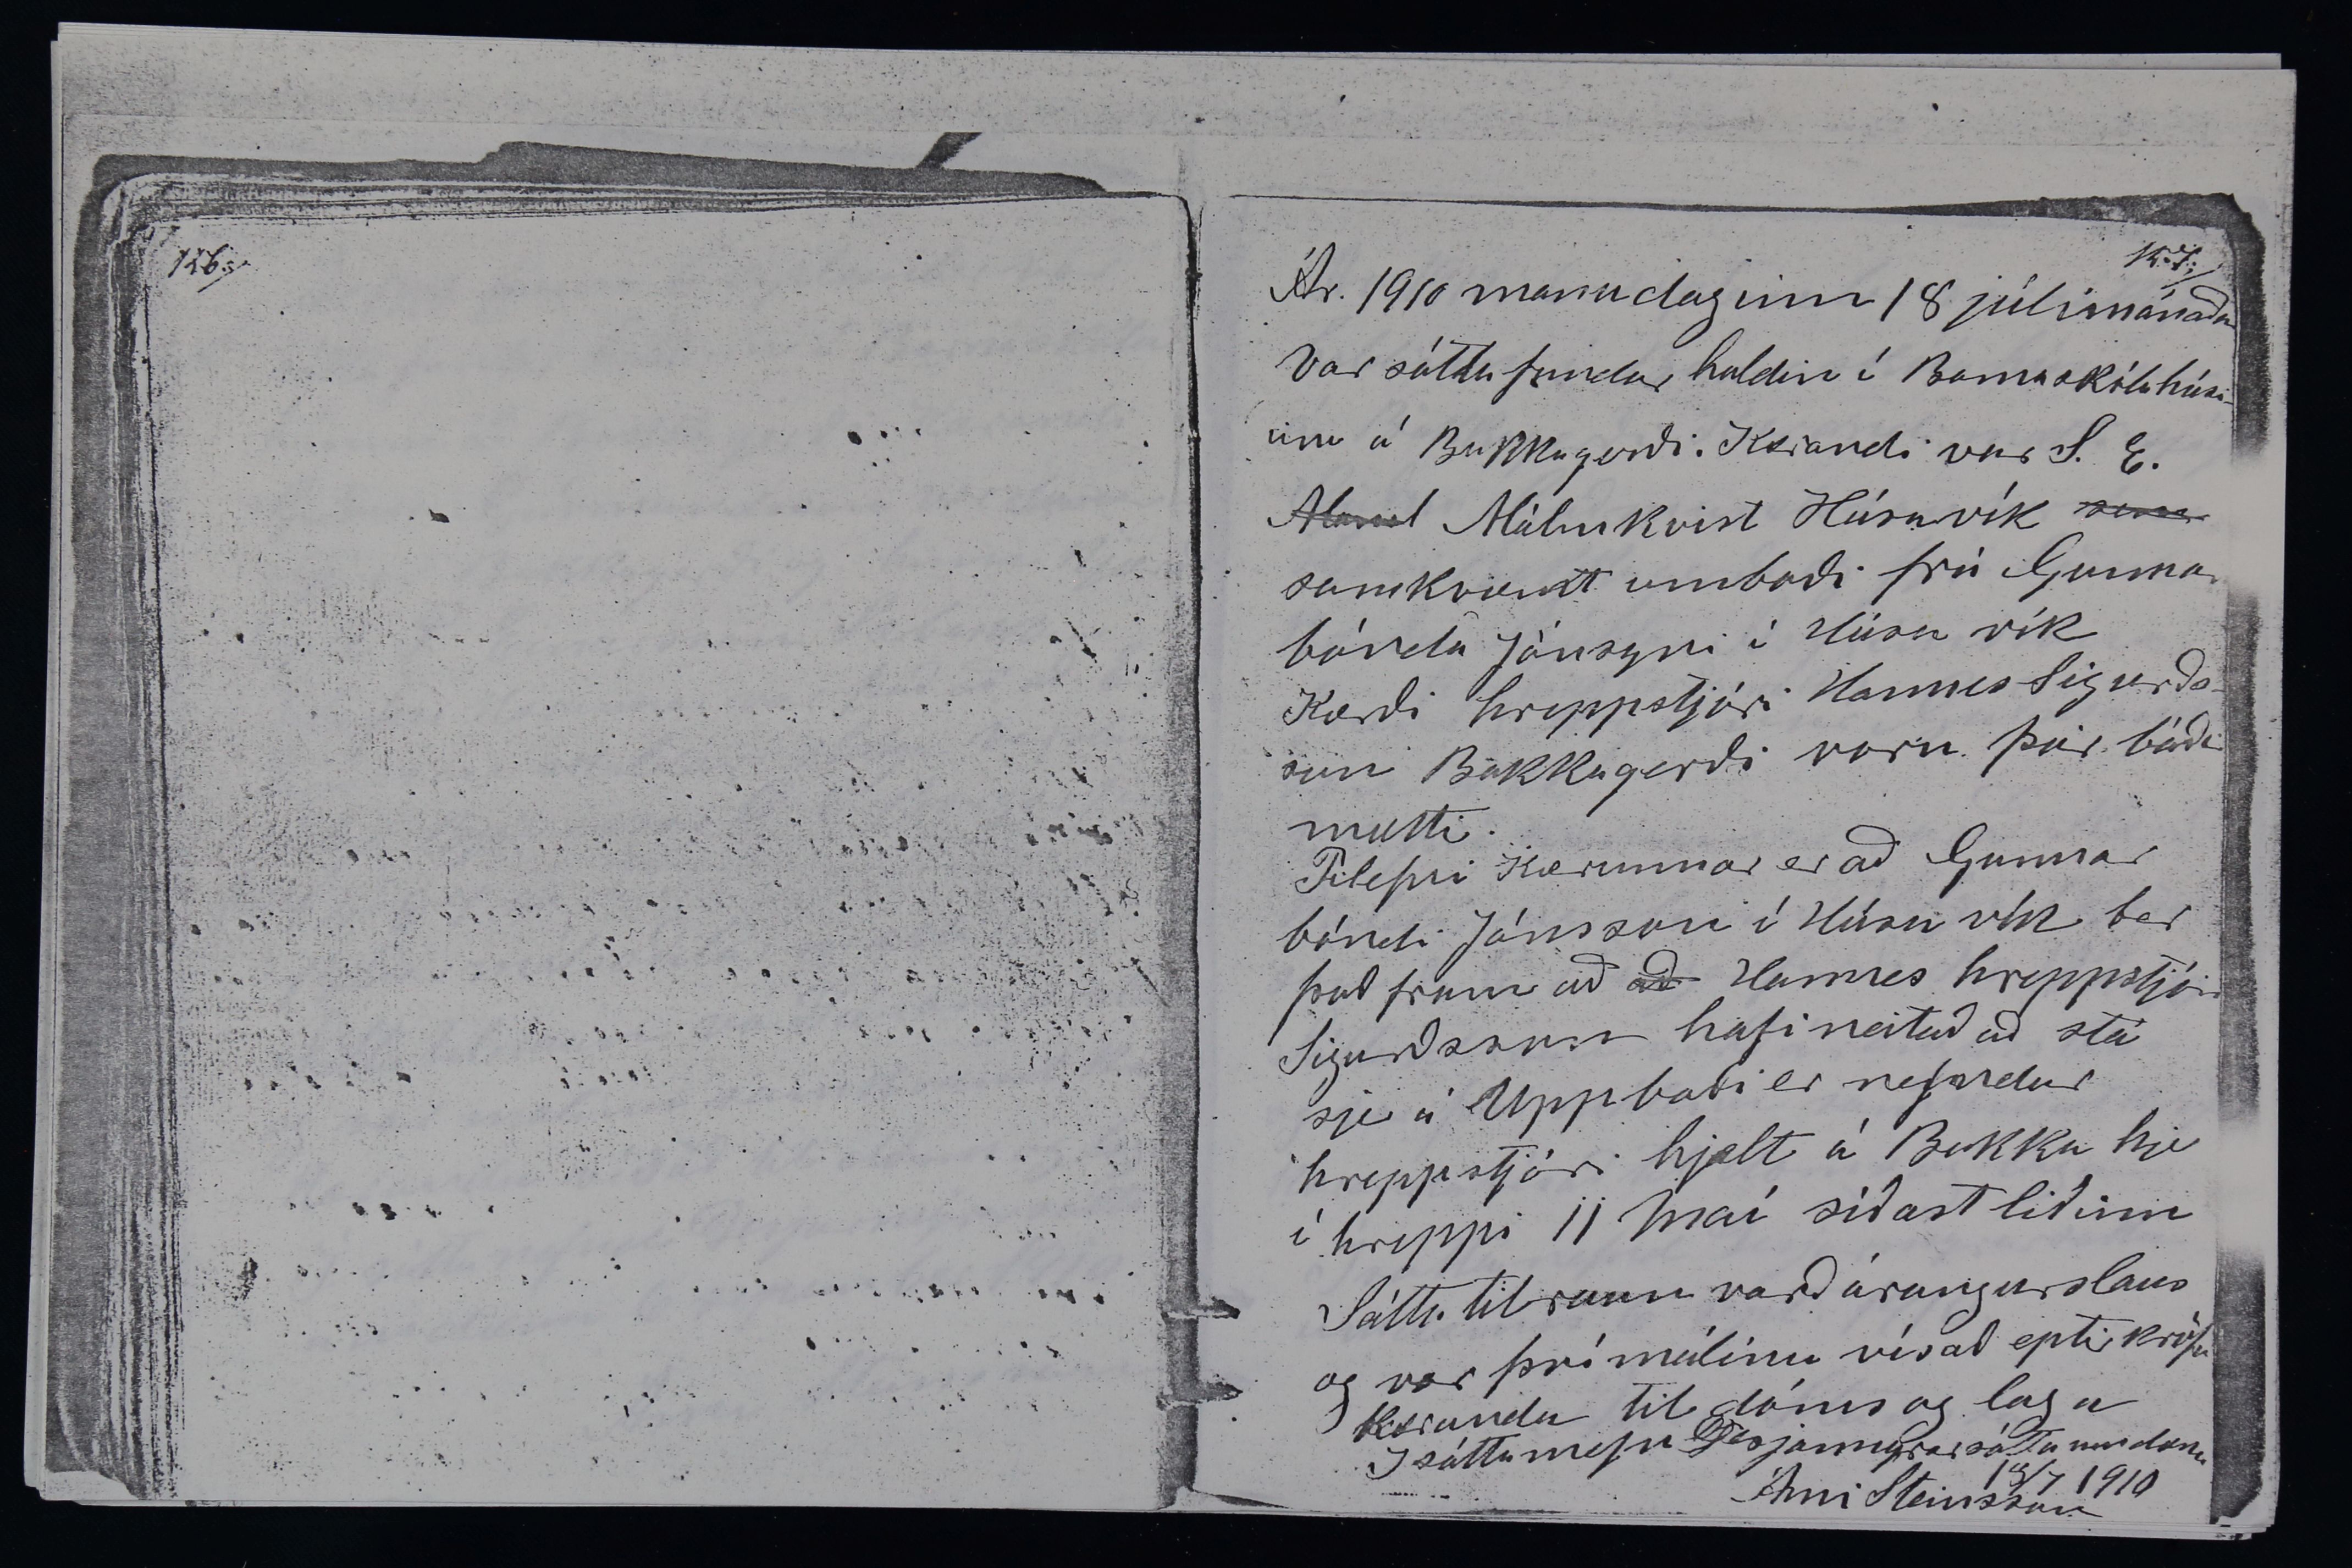 126.
127.
Ár. 1910 manudaginn 18 júlímánaðar
Var sáttafundur haldin í Barnaskólahúsi-
inu á Bakkagerði. Kærandi var S. E.
Málmkvist Húsavík
samkvæmt umboði frá Gunnar
bónda Jónsyni í Húsavík
Kærði hreppstjóri Hannes Sigurðs-
son Bakkagerði voru þeir báðir
mætti.
Tilefni Kærunnar er að Gunnar
bóndi Jónsson í Húsavík ber
það fram að að Hannes hreppstjóri
Sigurðsson hafi neitað að slá
sje á Uppboði er nefndur
hreppstjóri hjelt á Bakka hje
í hreppi 11 Maí síðast liðinn
Sátta tilraun varð árangurslaus
og var því málinu vísað eptir kröfu
Kæranda til dóms og laga
Í sáttanefnd Desjarmýrarsáttaumdæmi
18/7 1910
Árni Steinsson